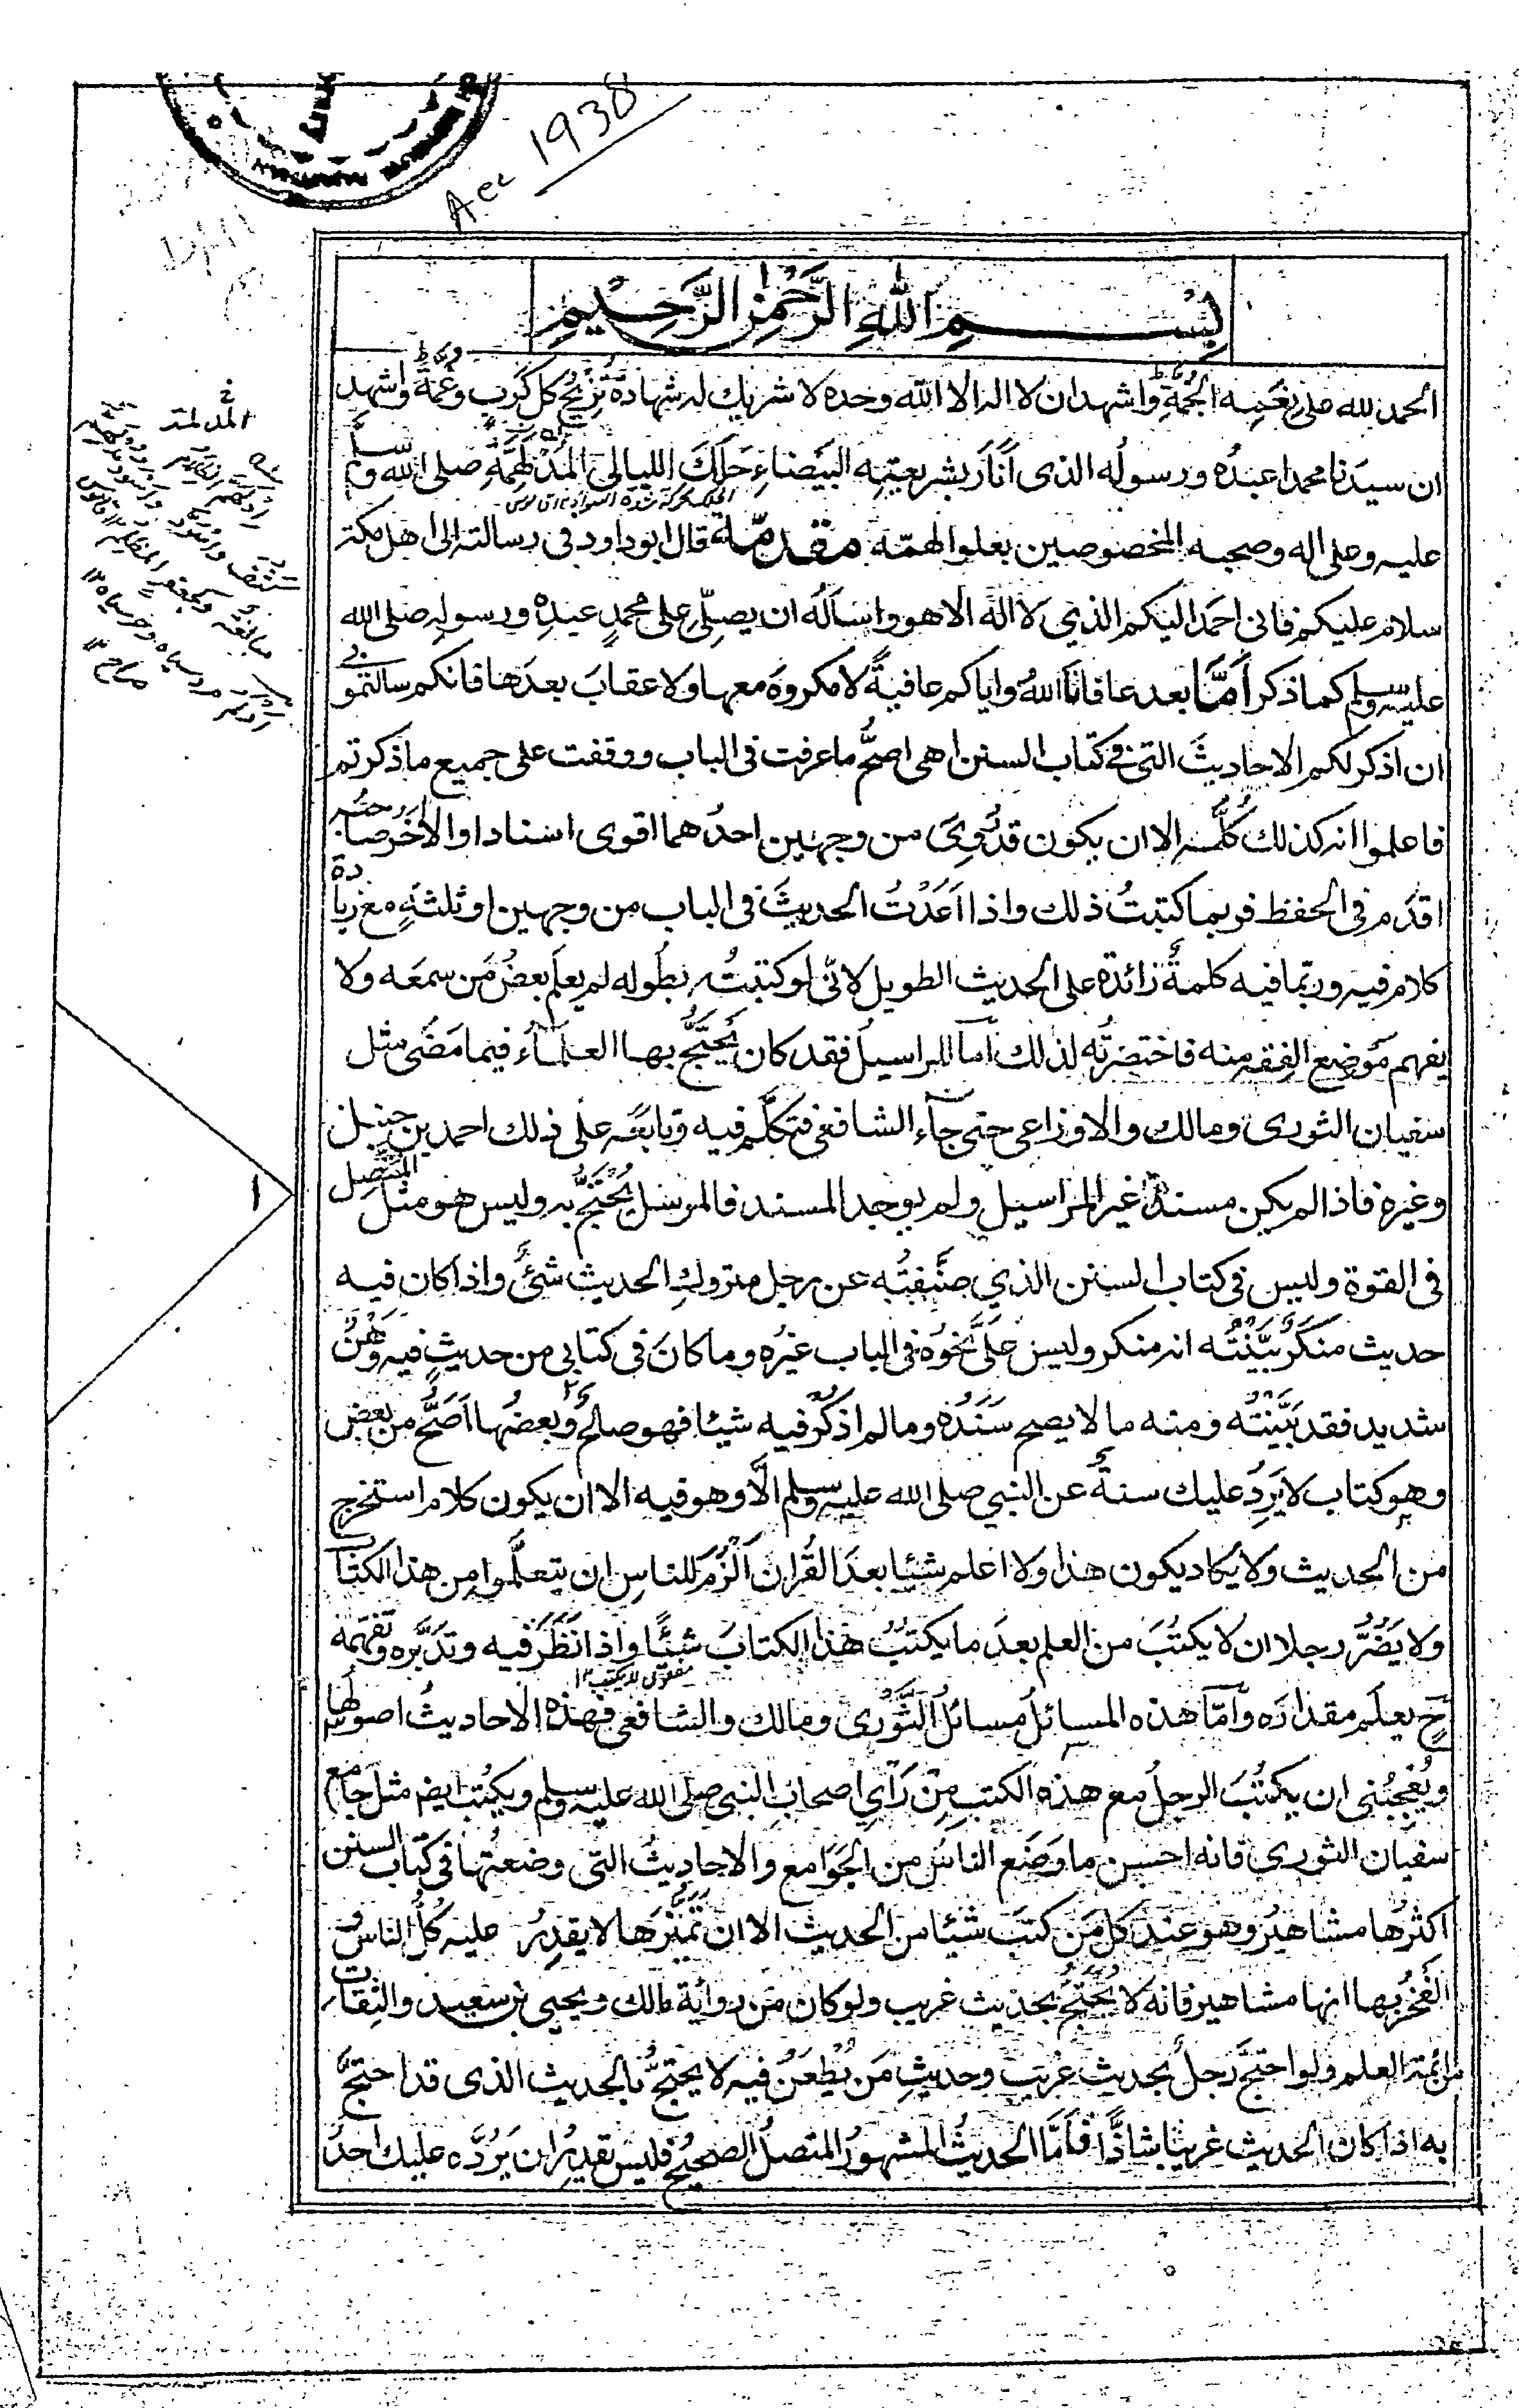 Acc 1938
بِسْمِ اللهِ الرَّحْمٰنِ الرَّحِيْمِ
الحمد لله على نعمه الجمّة واشهد ان لا اله الا الله وحده لا شريك له شهادة تزيح كل كرب وغمة واشهد
ان سيدنا محمدا عبده ورسوله الذى انار بشريعته البيضاء حلك الليالى المدلهمة صلى الله وسلم
عليه وعلى اله وصحبه المخصوصين بعلو الهمة مقدمة قال ابو داود فى رسالته الى اهل مكة
سلام عليكم فانى احمد اليكم الذي لا اله الا هو واسأله ان يصلى على محمد عبده ورسوله صلى الله
عليه وسلم كما ذكر اَمَّا بعد عافانا الله واياكم عافية لا مكروه معها ولا عقاب بعدها فانكم سالتمونى
ان اذكر لكم الاحاديث التى فى كتاب السنن اهى اصح ما عرفت فى الباب ووقفت على جميع ما ذكرتم
فاعلموا انه كذلك كلّه الا ان يكون قد روى من وجهين احدهما اقوى اسنادا والاخر صاحبه
اقدم فى الحفظ فربما كتبت ذلك واذا اعدت الحديث فى الباب من وجهين او ثلثة مع زيادة
كلام فيه وربما فيه كلمة زائدة على الحديث الطويل لانى لو كتبته بطوله لم يعلم بعض من سمعه ولا
يفهم موضع الفقه منه فاختصرته لذلك اما المراسيل فقد كان يحتج بها العلماء فيما مضى مثل
سفيان الثورى ومالك والاوزاعى حتى جاء الشافعى فتكلم فيه وتابعه على ذلك احمد بن حنبل
وغيره فاذا لم يكن مسند غير المراسيل ولم يوجد المسند فالمرسل يحتج به وليس هو مثل المتصل
فى القوة وليس فى كتاب السنن الذي صنفته عن رجل متروك الحديث شئ واذا كان فيه
حديث منكر بينته انه منكر وليس على نحوه فى الباب غيره وما كان فى كتابى من حديث فيه وهن
شديد فقد بينته ومنه ما لا يصح سنده وما لم اذكر فيه شيئا فهو صالح وبعضها اصح من بعض
وهو كتاب لا يرد عليك سنة عن النبي صلى الله عليه وسلم الا وهو فيه الا ان يكون كلام استخرج
من الحديث ولا يكاد يكون هذا ولا اعلم شيئا بعد القران الزم للناس ان يتعلموا من هذا الكتاب
ولا يضر رجلا ان لا يكتب من العلم بعد ما يكتب هذا الكتاب شيئا واذا نظر فيه وتدبره وتفهمه
ح يعلم مقداره واما هذه المسائل مسائل الثورى ومالك والشافعى فهذه الاحاديث اصولها
ويعجبنى ان يكتب الرجل مع هذه الكتب من رأي اصحاب النبي صلى الله عليه وسلم ويكتب ايضم مثل جامع
سفيان الثوري فانه احسن ما وضع الناس من الجوامع والاحاديث التى وضعتها فى كتاب السنن
اكثرها مشاهير وهو عند كل من كتب شيئا من الحديث الا ان تميزها لا يقدر عليه كل الناس و
الفخر بها انها مشاهير فانه لا يحتج بحديث غريب ولو كان من رواية مالك ويحيى بن سعيد والثقات
من ائمة العلم ولو احتج رجل بحديث غريب وحديث من يطعن فيه لا يحتج بالحديث الذى قد احتج
به اذا كان الحديث غريبا شاذا فاما الحديث المشهور المتصل الصحيح فليس يقدر ان يرده عليك احد
ا